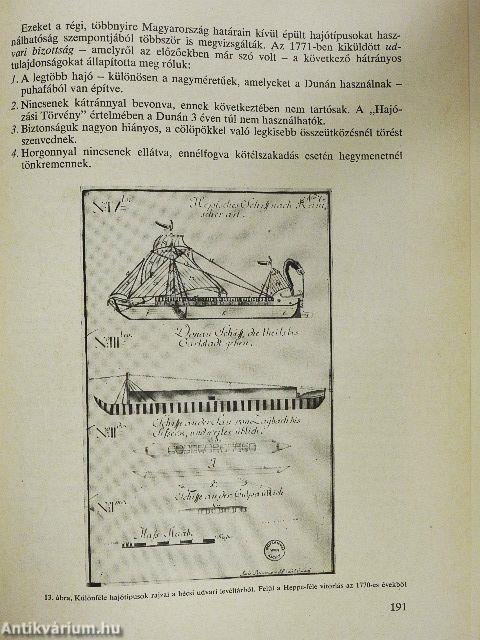 Ezeket a régi, többnyire Magyarország határain kívül épült hajótípusokat hasz-
nálhatóság szempontjából többször is megvizsgálták. Az 1771-ben kiküldött ud-
vari bizottság – amelyről az előzőekben már szó volt – a következő hátrányos
tulajdonságokat állapította meg róluk:
1. A legtöbb hajó – különösen a nagyméretűek, amelyeket a Dunán használnak –
puhafából van építve.
2. Nincsenek kátránnyal bevonva, ennek következtében nem tartósak. A „Hajó-
zási Törvény” értelmében a Dunán 3 éven túl nem használhatók.
3. Biztonságuk nagyon hiányos, a cölöpökkel való legkisebb összeütközésnél törést
szenvednek.
4. Horgonnyal nincsenek ellátva, ennélfogva kötélszakadás esetén hegymenetnél
tönkremennek.
Heppisches Schiff nach
Donau Schiff, die theils bis
Carlstadt gehen.
Schiffe auf der
Schiffe auf der Culpa üblich
Mass Staab.
13. ábra. Különféle hajótípusok rajzai a bécsi udvari levéltárból. Felül a Heppe-féle vitorlás az 1770-es évekből
191
Antikvárium.hu